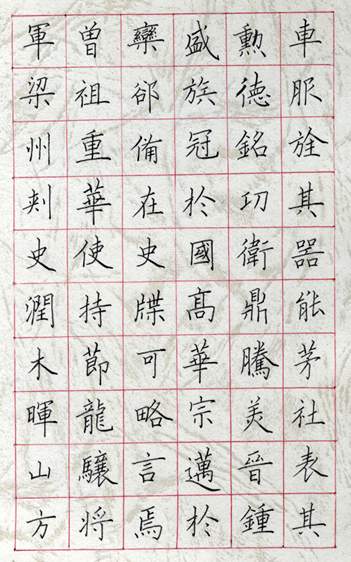 車服旌其器能茅社表其
勳德銘功衛鼎騰美晉鍾
盛族冠於國高華宗邁於
欒郤備在史牒可略言焉
曾祖重華使持節龍驤将
軍梁州刾史潤木暉山方